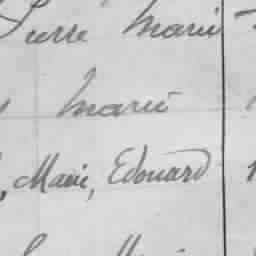 Pierre Marie
Marie
, Marie, Edouard